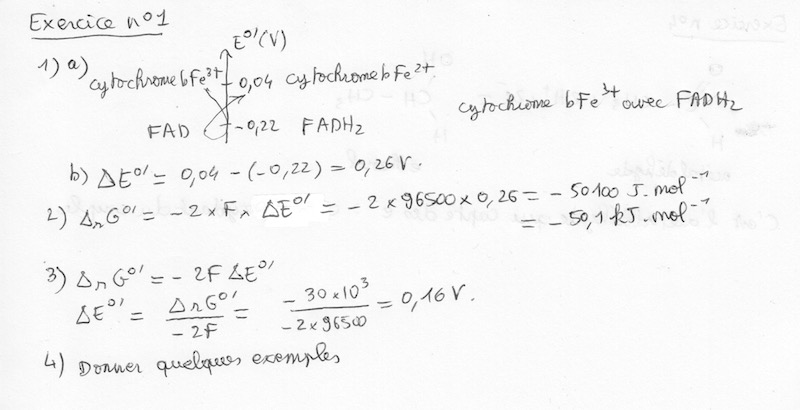 Exercice n°1
E°'(V)
1) a) cytochrome b Fe³⁺ 0,04 cytochrome b Fe²⁺
cytochrome b Fe³⁺ avec FADH₂
FAD -0,22 FADH₂
b) ΔE°' = 0,04 - (-0,22) = 0,26 V.
2) ΔrG°' = -2 × F × ΔE°' = -2 × 96500 × 0,26 = - 50100 J.mol⁻¹
= - 50,1 kJ.mol⁻¹
3) ΔrG°' = - 2F ΔE°'
ΔE°' = ΔrG°' / -2F = - 30 × 10³ / -2 × 96500 = 0,16 V.
4) Donner quelques exemples